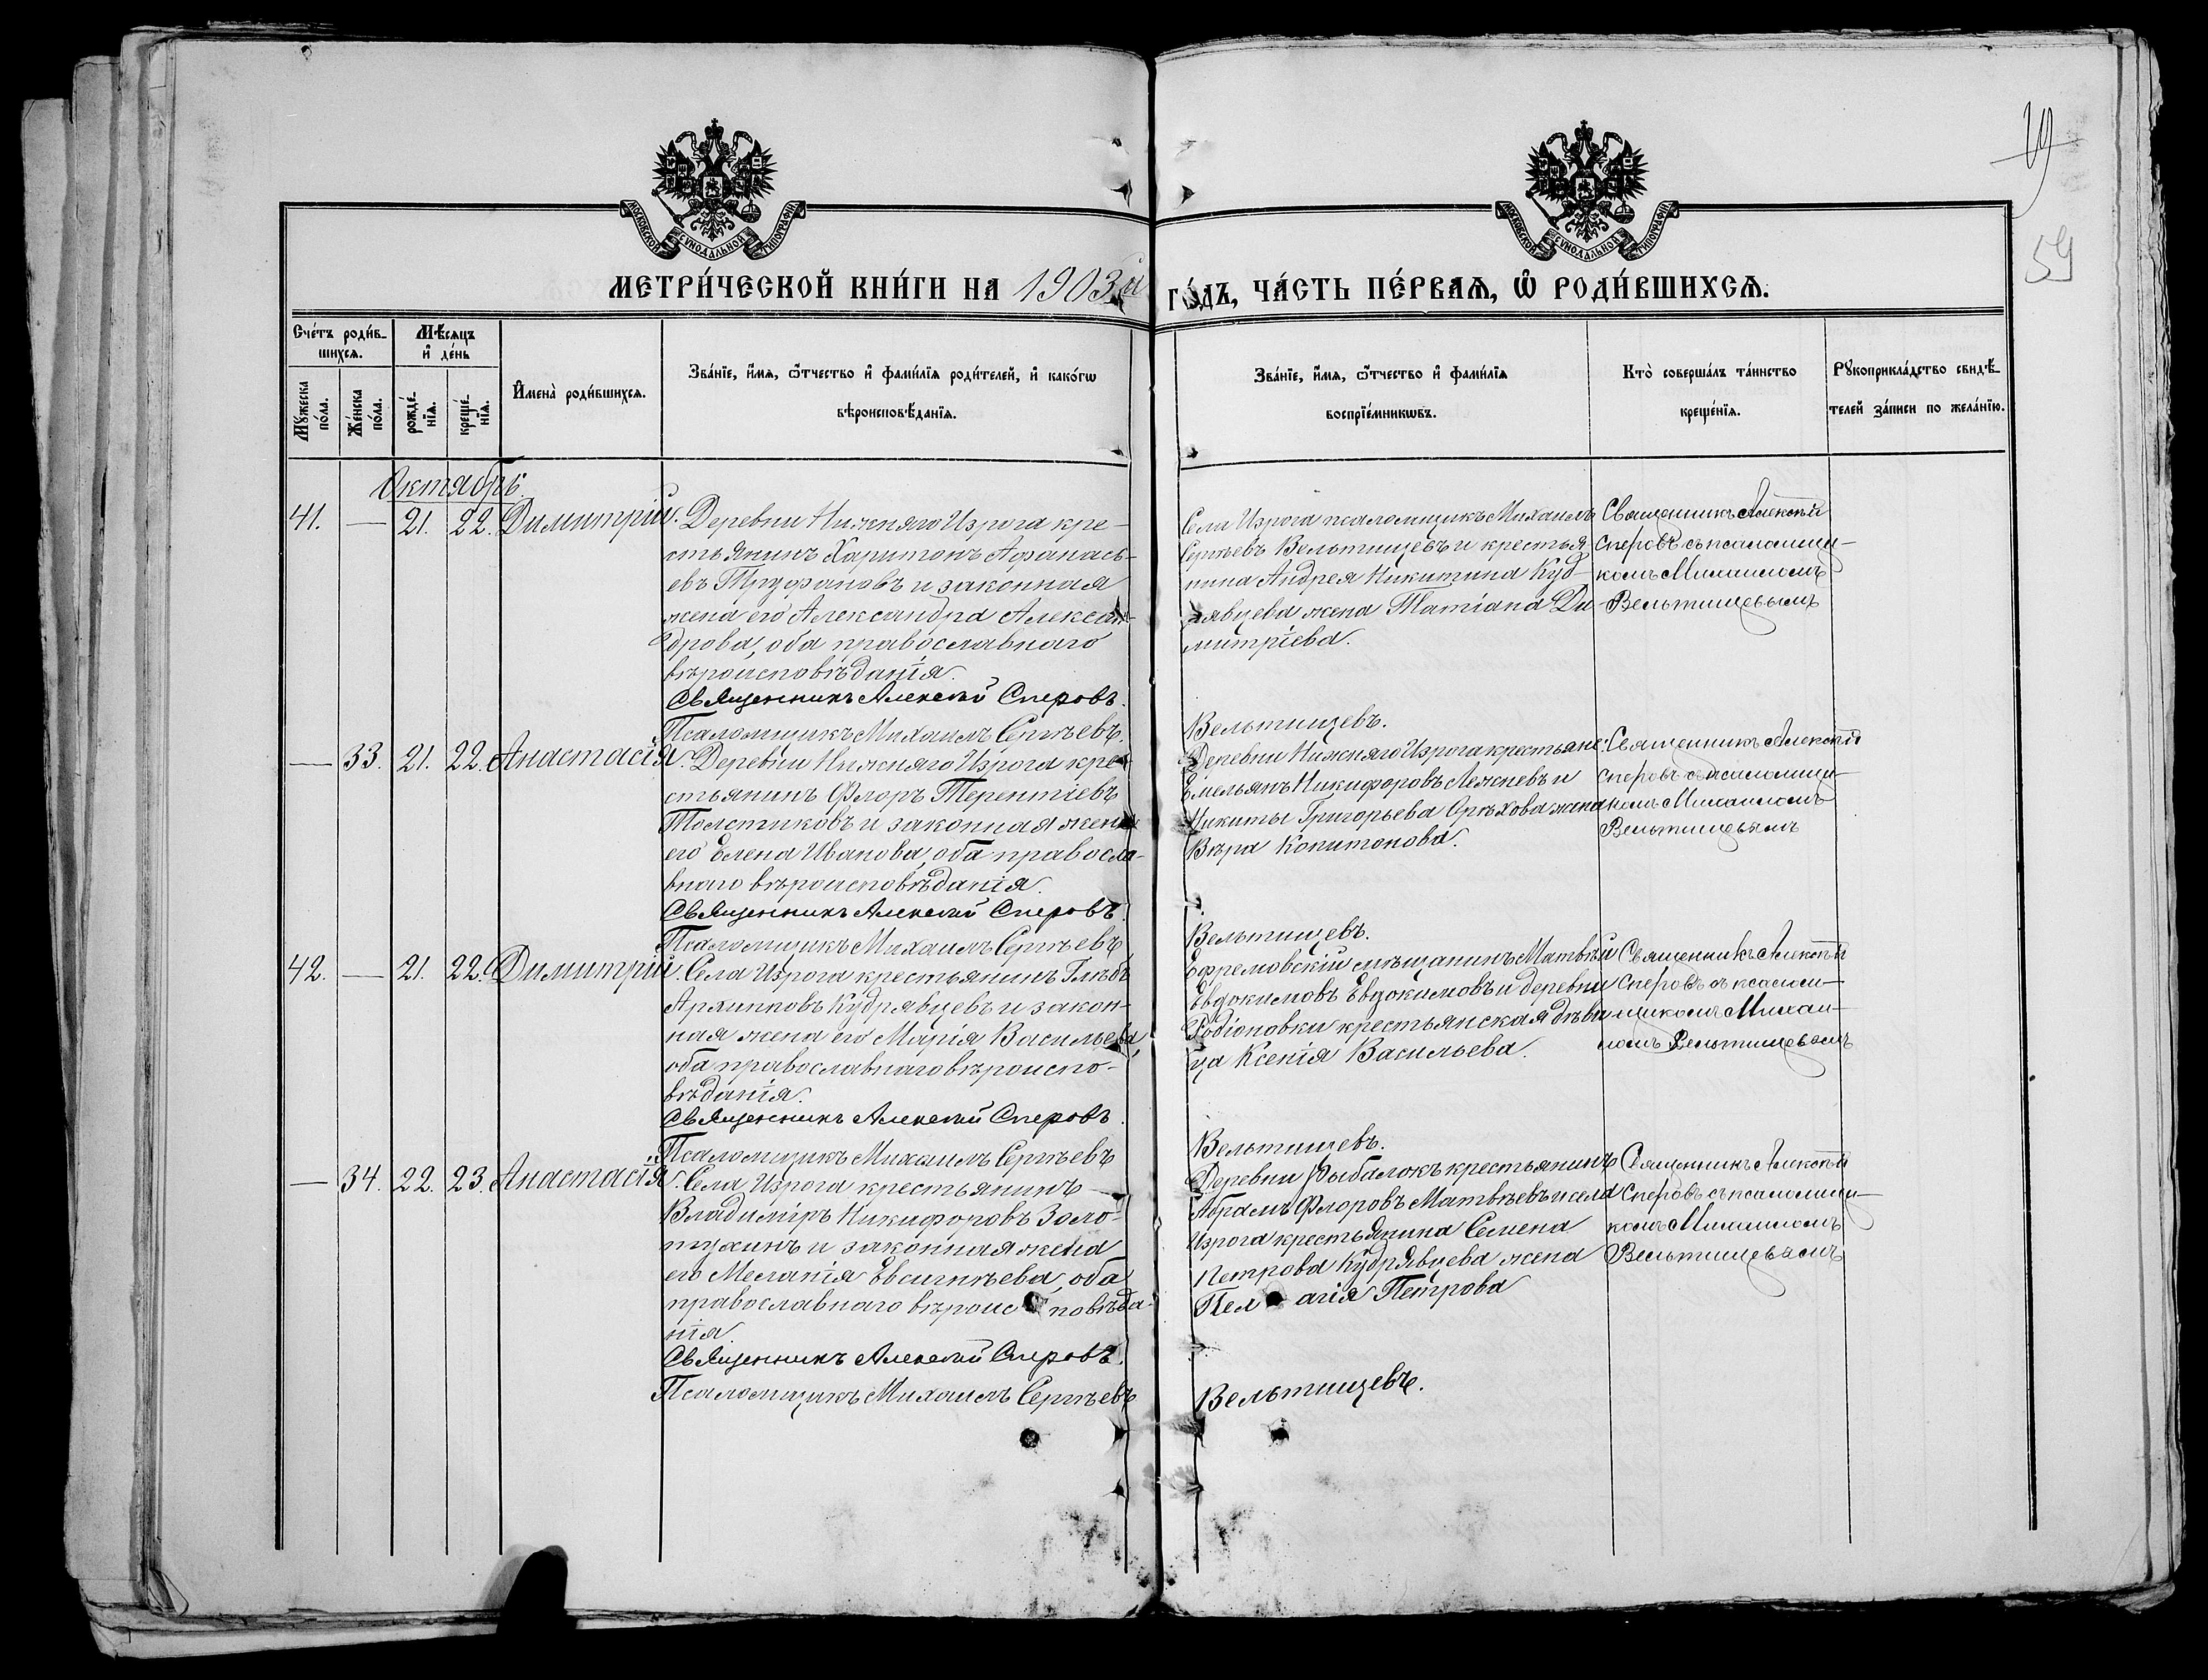 19
59
МОСКОВСКОЙ СѴНОДАЛЬНОЙ ТИПОГРАФІИ
МОСКОВСКОЙ СѴНОДАЛЬНОЙ ТИПОГРАФІИ
МЕТРИ́ЧЕСКОЙ КНИ́ГИ НА 1903й ГО́ДЪ, ЧА́СТЬ ПЕ́РВАѦ, Ѡ҆ РОДИ́ВШИХСѦ.
Сче́тъ роди́в-
шихсѧ.
Мꙋ́жеска по́ла.
Же́нска по́ла.
Мѣ́сяцъ
и҆ де́нь
рожде́-
нїѧ.
креще́-
нїѧ.
И҆мена̀ роди́вшихсѧ.
Зва́нїе, и҆́мѧ, ѻ҆́тчество и҆ фами́лїѧ роди́телей, и҆ како́гѡ
вѣроисповѣ́данїѧ.
Зва́нїе, и҆́мѧ, ѻ҆́тчество и҆ фами́лїѧ
воспрїе́мникѡвъ.
Кто̀ соверша́лъ та́инство
креще́нїѧ.
Рꙋкоприкла́дство свидѣ́-
телей за́писи по жела́нїю.
Октябрь
41. — 21. 22. Димитрій.
Деревни Нижняго Изрога кре-
стьянинъ Харитонъ Афанась-
евъ Труфановъ и законная
жена его Александра Алексан-
дрова, оба православнаго
вѣроисповѣданія.
Священникъ Алексѣй Сперовъ.
Псаломщикъ Михаилъ Сергѣевъ
Села Изрога псаломщикъ Михаилъ
Сергѣевъ Вельтищевъ и крестья-
нина Андрея Никитина Куд-
рявцева жена Татіана Ди-
митріева.
Вельтищевъ.
Священникъ Алексѣй
Сперовъ съ псаломщи-
комъ Михаиломъ
Вельтищевымъ
— 33. 21. 22. Анастасія.
Деревни Нижняго Изрога кре-
стьянинъ Флоръ Терентіевъ
Толстиковъ и законная жена
его Елена Иванова, оба правосла-
внаго вѣроисповѣданія.
Священникъ Алексѣй Сперовъ.
Псаломщикъ Михаилъ Сергѣевъ
Деревни Нижняго Изрога крестьяне:
Емельянъ Никифоровъ Лежневъ и
Никиты Григорьева Орѣхова жена
Вѣра Капитонова.
Вельтищевъ.
Священникъ Алексѣй
Сперовъ съ псаломщи-
комъ Михаиломъ
Вельтищевымъ
42. — 21. 22. Димитрій.
Села Изрога крестьянинъ Глѣбъ
Архиповъ Кудрявцевъ и закон-
ная жена его Марія Васильева,
оба православнаго вѣроиспо-
вѣданія.
Священникъ Алексѣй Сперовъ.
Псаломщикъ Михаилъ Сергѣевъ
Ефремовскій мѣщанинъ Матвѣй
Евдокимовъ Евдокимовъ и деревни
Родіоновки крестьянская дѣви
ца Ксенія Васильева.
Вельтищевъ.
Священникъ Алексѣй
Сперовъ съ псалом-
щикомъ Михаи-
ломъ Вельтищевымъ
— 34. 22. 23. Анастасія.
Села Изрога крестьянинъ
Владиміръ Никифоровъ Золо-
тухинъ и законная жена
его Меланія Евсигнѣева, оба
православнаго вѣроисповѣда-
нія.
Священникъ Алексѣй Сперовъ.
Псаломщикъ Михаилъ Сергѣевъ
Деревни Рыбалокъ крестьянинъ
Абрамъ Флоровъ Матвѣевъ и села
Изрога крестьянина Семена
Петрова Кудрявцева жена
Пелагія Петрова
Вельтищевъ.
Священникъ Алексѣй
Сперовъ съ псаломщи-
комъ Михаиломъ
Вельтищевымъ